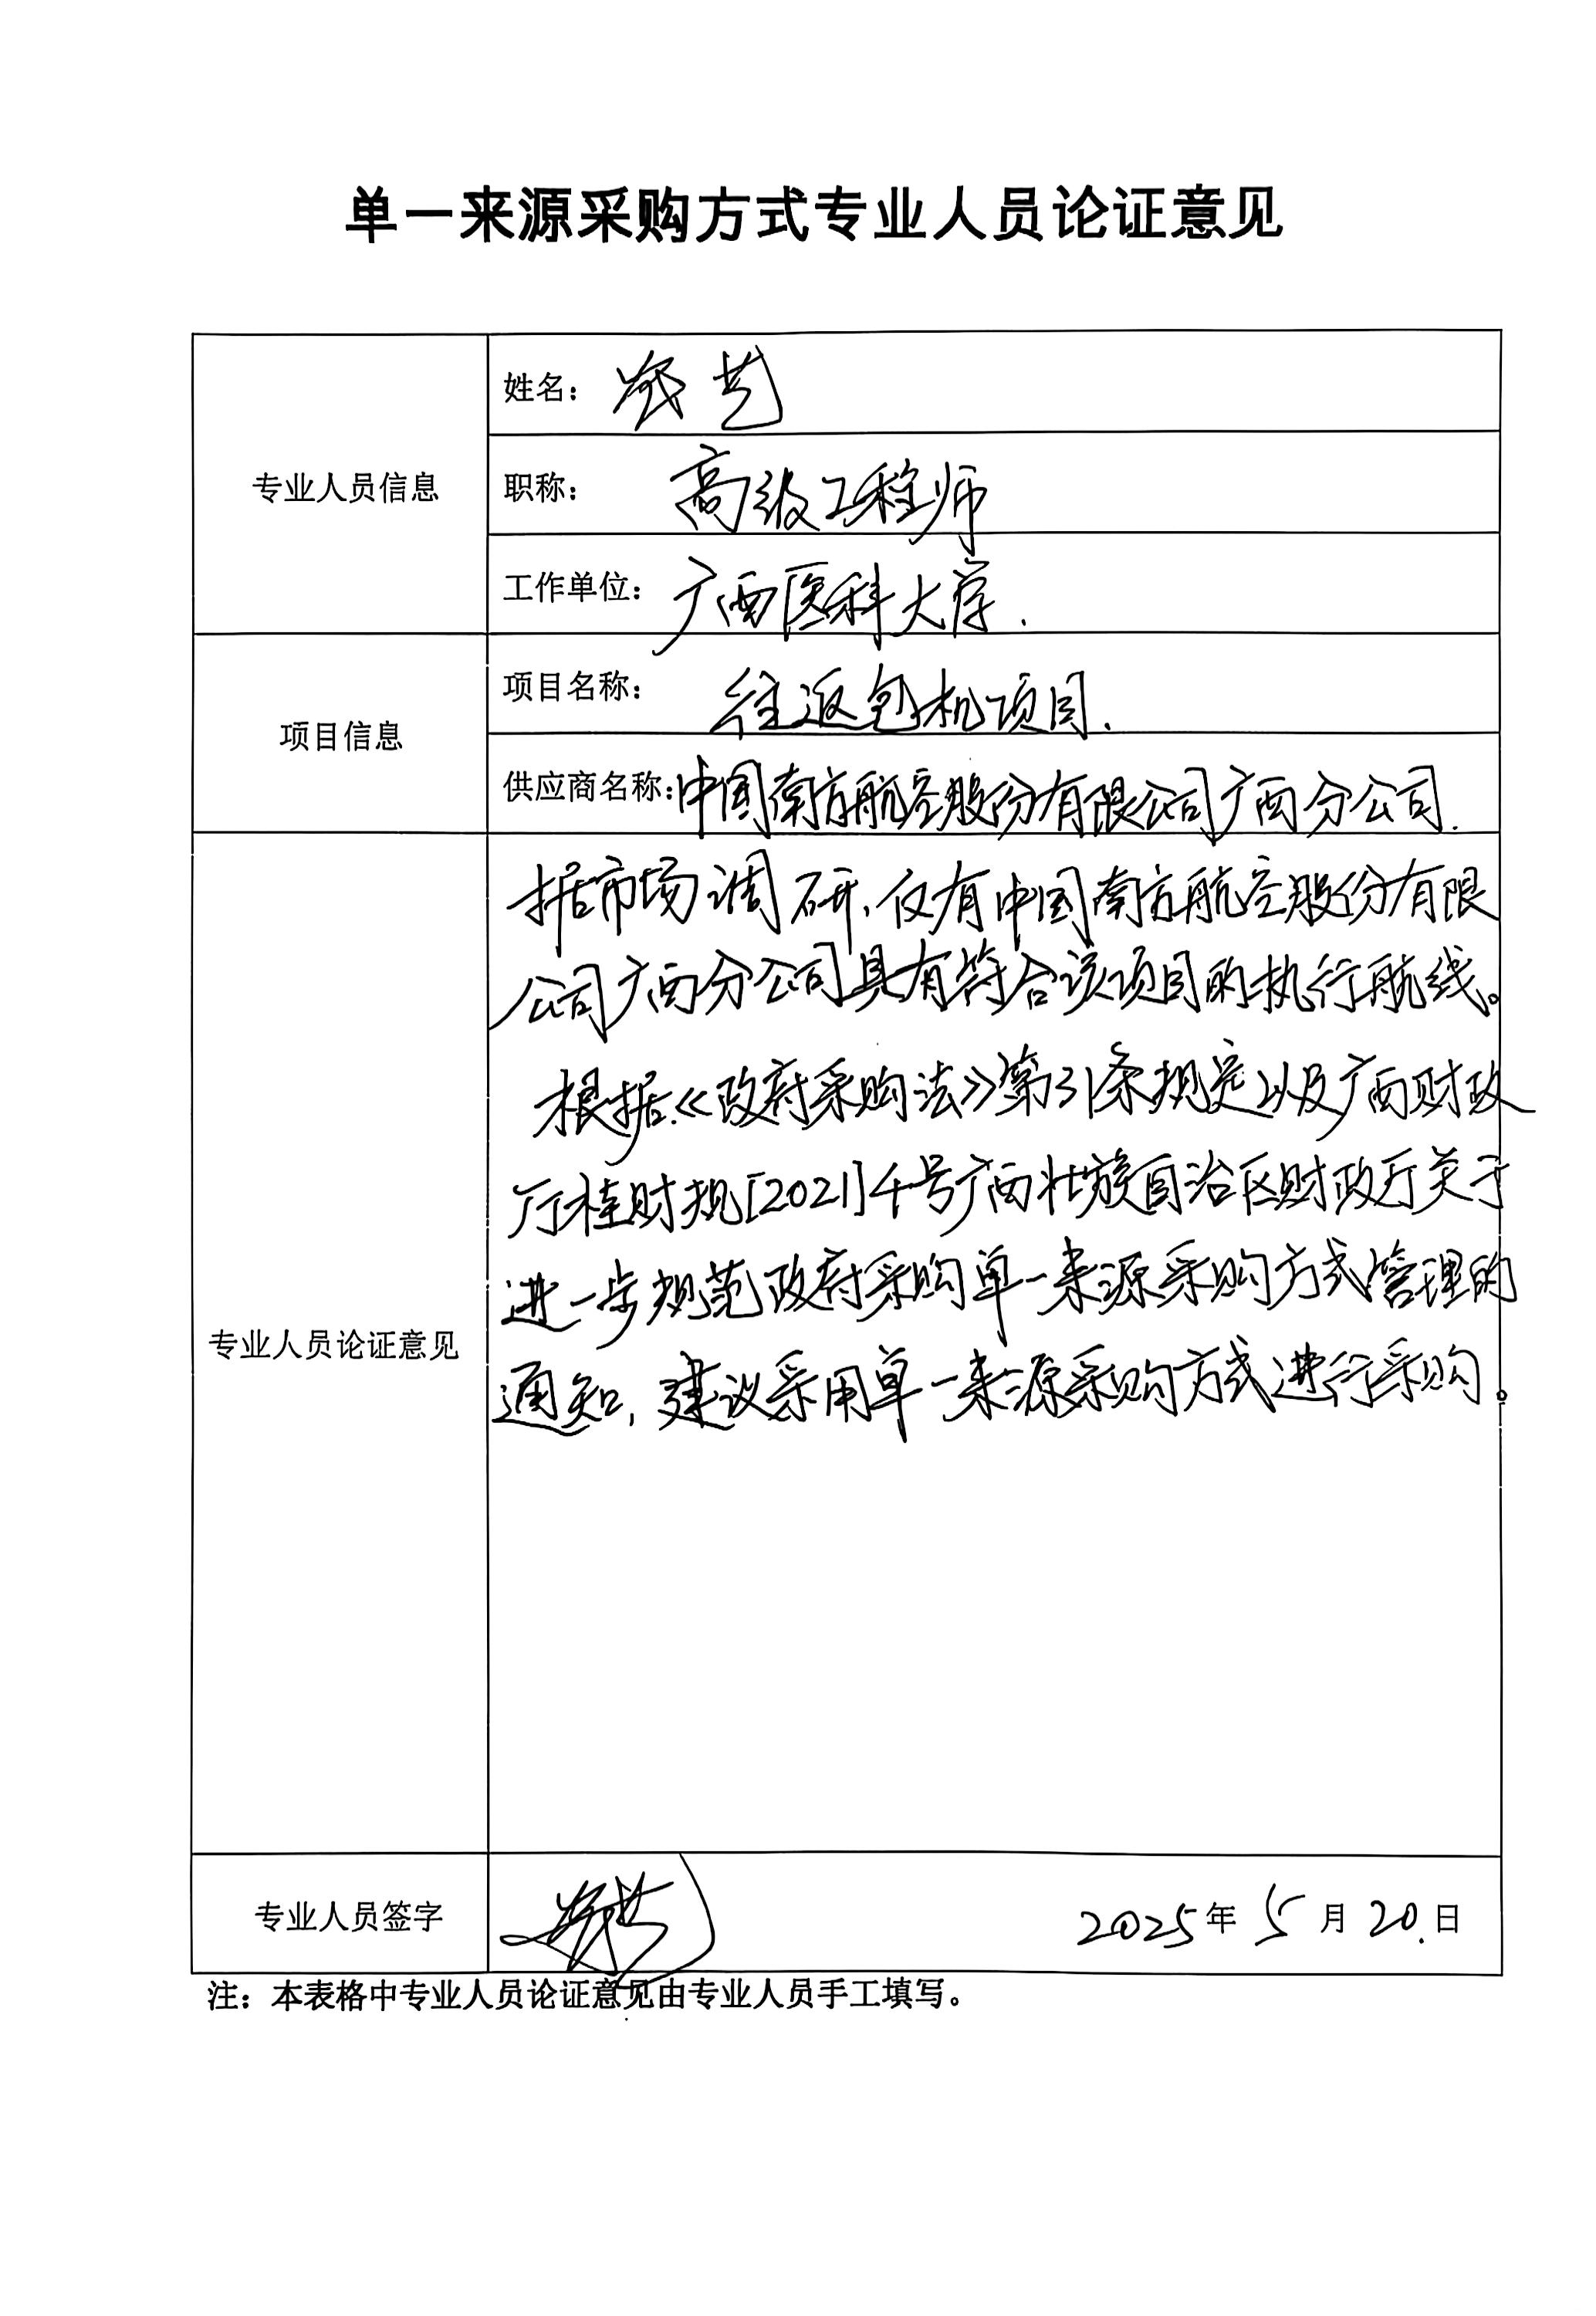 单一来源采购方式专业人员论证意见
专业人员信息
姓名：
职称：高级工程师
工作单位：广西医科大学.
项目信息
项目名称：往返包机项目.
供应商名称：中国南方航空股份有限公司广西分公司.
专业人员论证意见
据市场调研，仅有中国南方航空股份有限
公司广西分公司具有符合该项目的执行航线。
根据《政府采购法》第31条规定以及广西财政
厅桂财规[2021]4号广西壮族自治区财政厅关于
进一步规范政府采购单一来源采购方式管理的
通知，建议采用单一来源采购方式进行采购。
专业人员签字
2025年5月20.日
注：本表格中专业人员论证意见由专业人员手工填写。